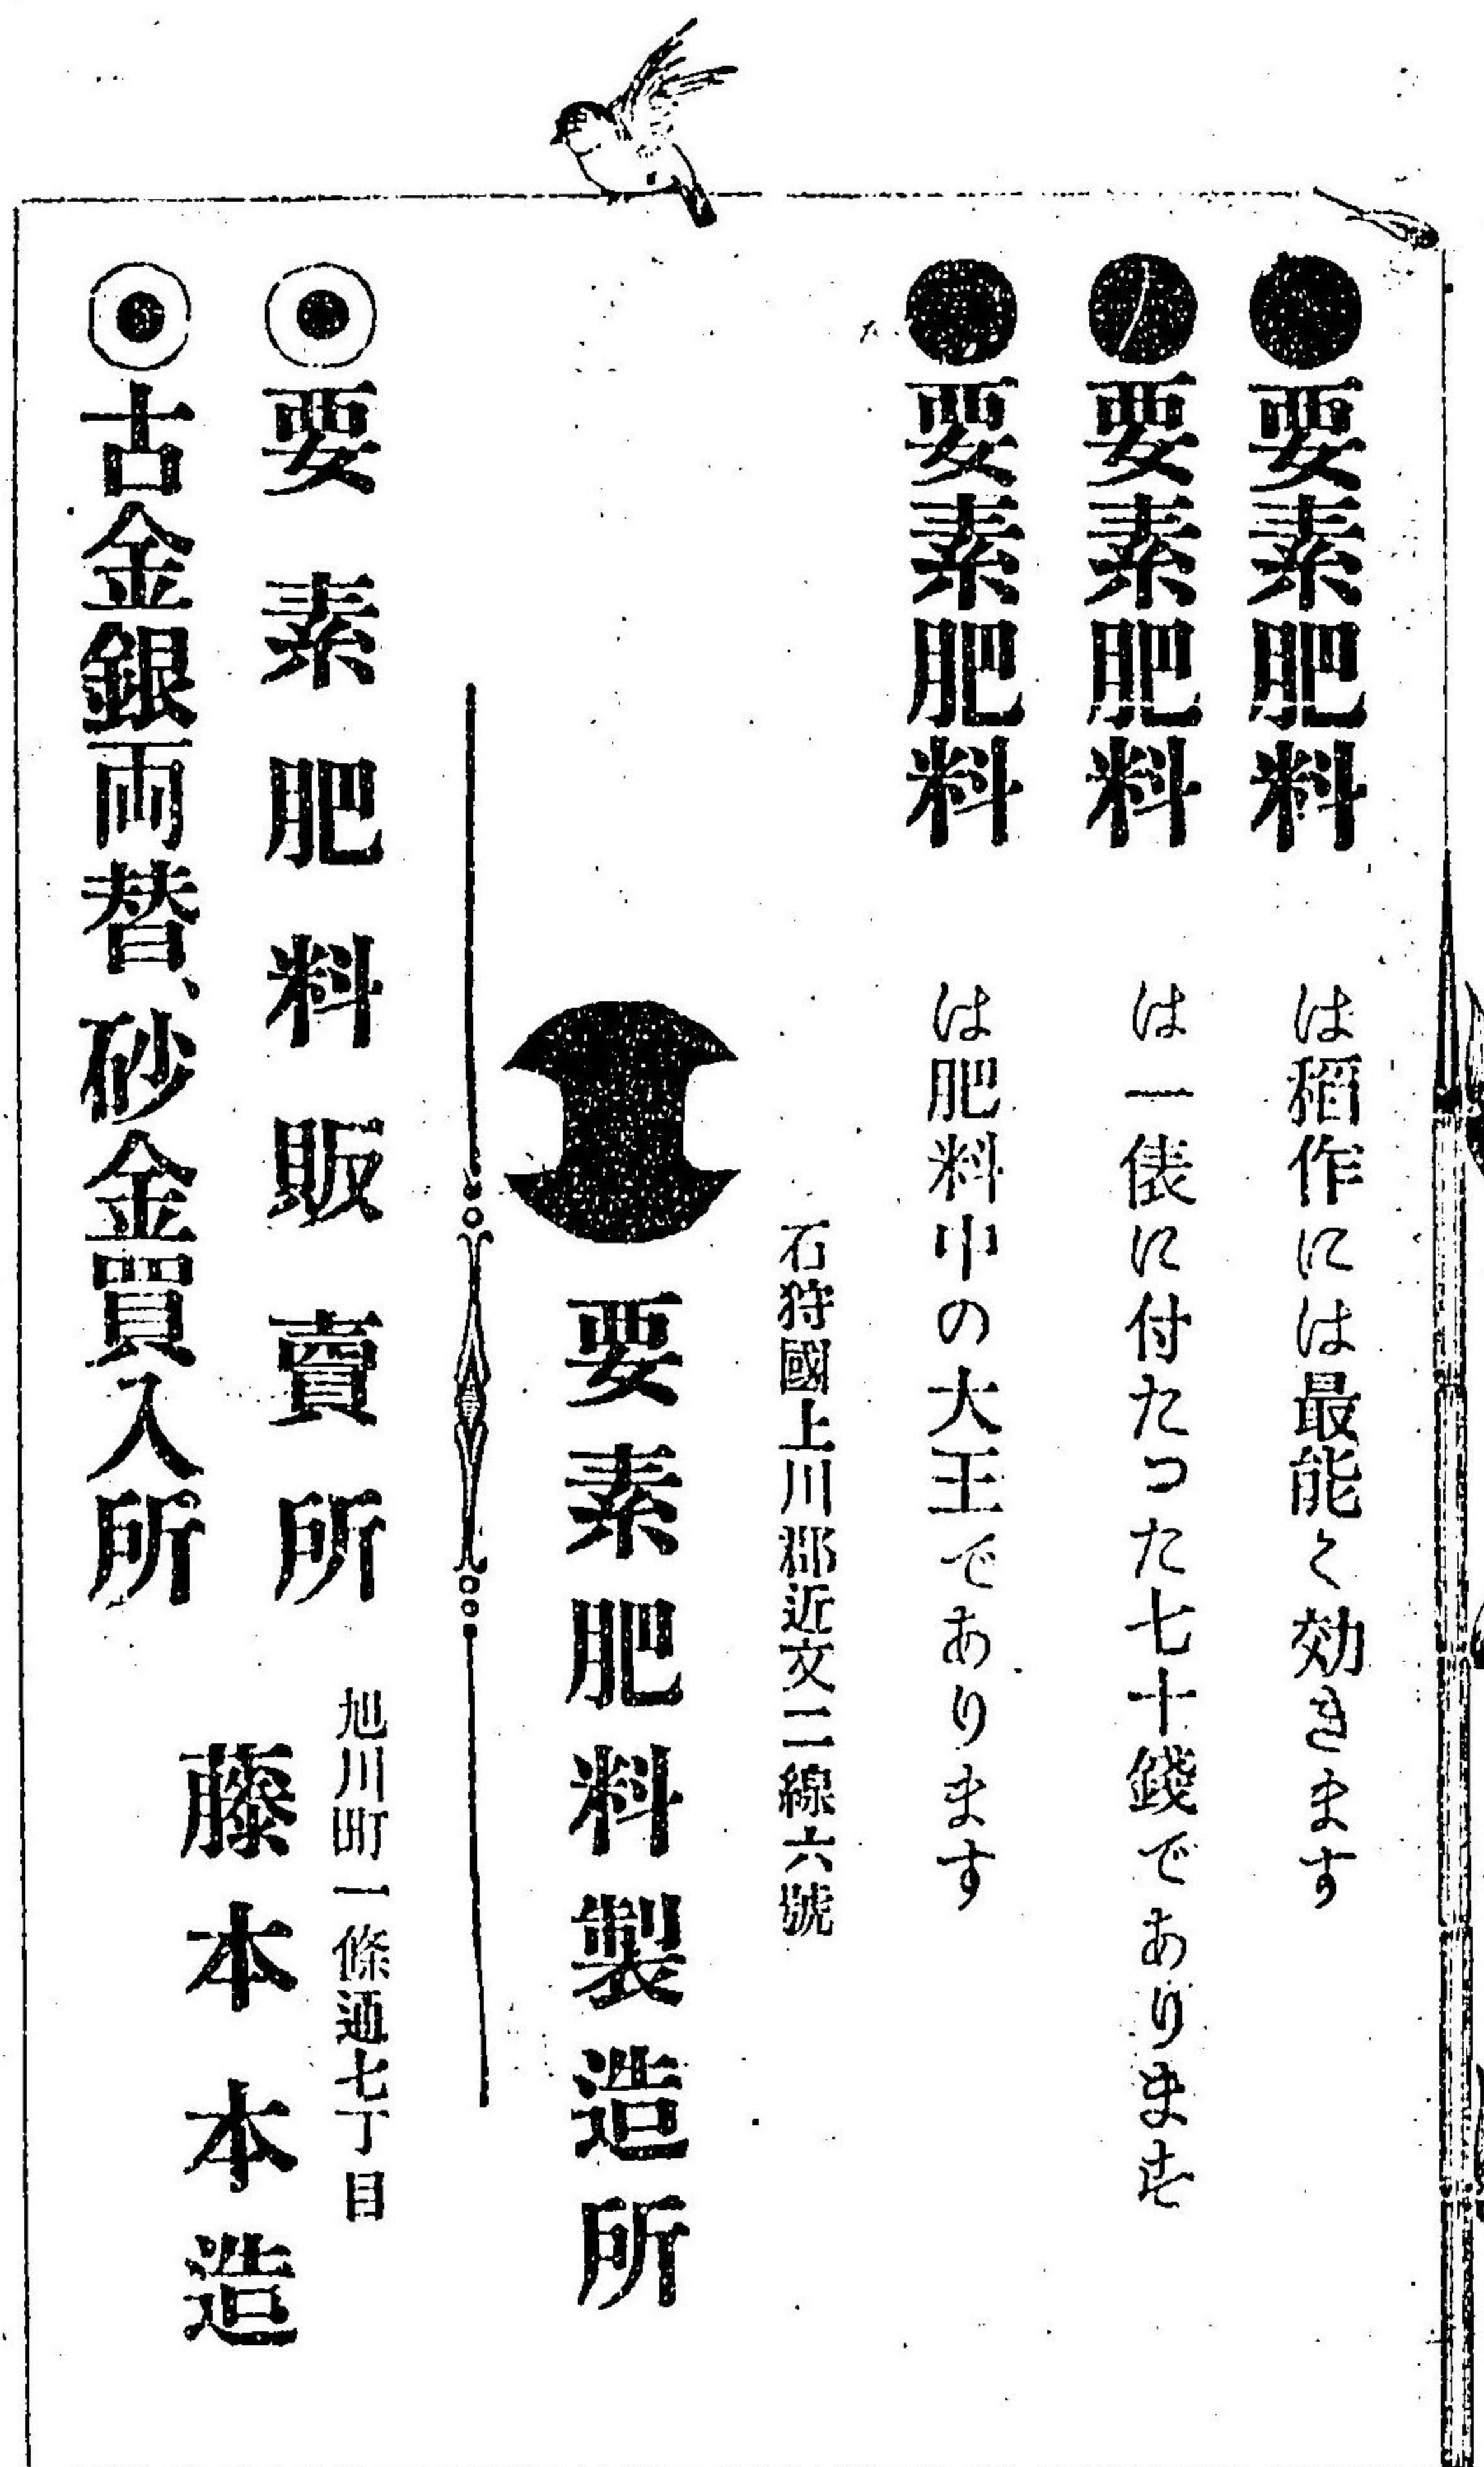 ●要素肥料 は稲作には最能く効きます
●要素肥料 は一俵に付たつた七十錢であります
●要素肥料 は肥料中の大王であります
石狩國上川郡近文二線六號
要素肥料製造所
◉要素肥料販賣所
旭川町一條通七丁目
藤本本造
◉古金銀両替、砂金買入所